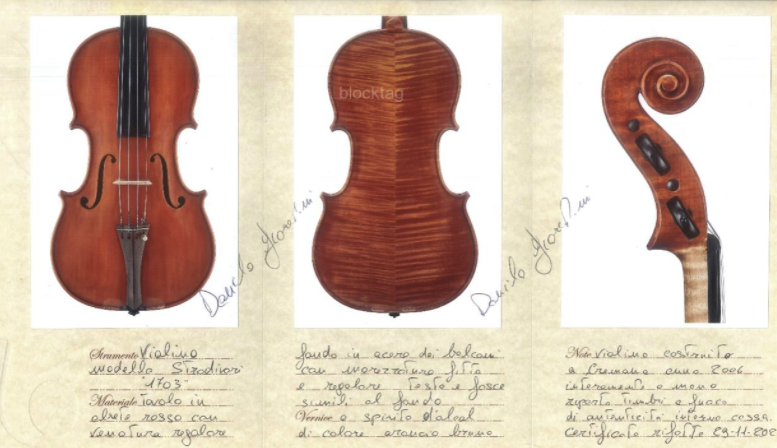 blocktag
Danilo
Danilo
Strumento Violino
modello Stradivari
"1703"
Materiale Tavola in
abete rosso con
venatura regolare
fondo in acero dei balcani
con marezzatura fitta
e regolare testa e fasce
simili al fondo
Vernice a spirito d'alcol
di colore arancio bruno
Note violino costruito
a Cremona anno 2006
interamente a mano
riporta timbri a fuoco
di autenticità interno cassa.
Certificato rifatto 29-11-202